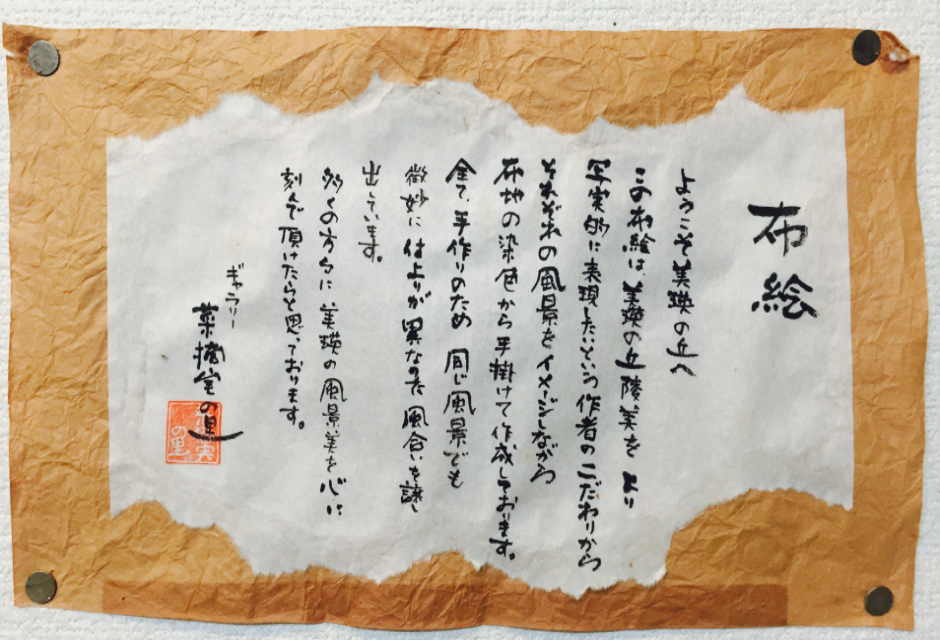 布絵
ようこそ美瑛の丘へ
この布絵は、美瑛の丘陵美を より
写実的に表現したいという作者のこだわりから
それぞれの風景をイメージしながら
布地の染色から手掛けて作成しております。
全て、手作りのため 同じ風景でも
微妙に仕上りが異なった風合いを醸し
出しています。
多くの方々に 美瑛の風景美を心に
刻んで頂けたらと思っております。
ギャラリー
菜摘実の里